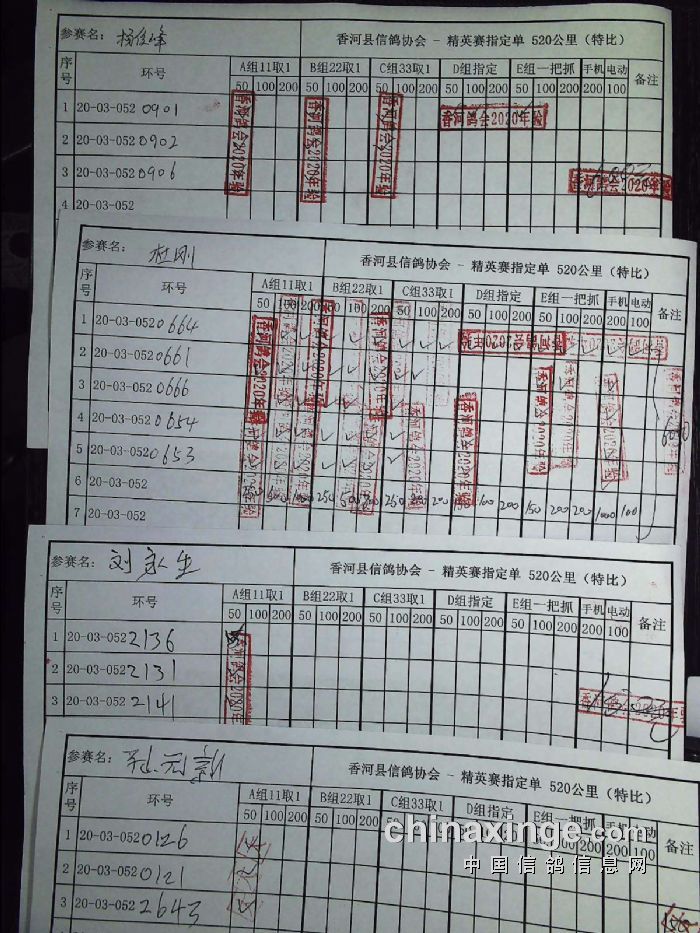 参赛名：杨任峰 香河县信鸽协会 - 精英赛指定单 520公里（特比）
序号 环号 A组11取1 B组22取1 C组33取1 D组指定 E组一把抓 手机 电动 备注
50 100 200 50 100 200 50 100 200 50 100 200 50 100 200 200 100
1 20-03-052 0901
2 20-03-052 0902
3 20-03-052 0906
4 20-03-052
香河鸽会2020年验
香河鸽会2020年验
香河鸽会2020年验
香河鸽会2020年验
香河鸽会2020年验
参赛名：杜刚 香河县信鸽协会 - 精英赛指定单 520公里（特比）
序号 环号 A组11取1 B组22取1 C组33取1 D组指定 E组一把抓 手机 电动 备注
50 100 200 50 100 200 50 100 200 50 100 200 50 100 200 200 100
1 20-03-052 0664
2 20-03-052 0661
3 20-03-052 0666
4 20-03-052 0654
5 20-03-052 0653
6 20-03-052
7 20-03-052
香河鸽会2020年验
香河鸽会2020年验
参赛名：刘永生 香河县信鸽协会 - 精英赛指定单 520公里（特比）
序号 环号 A组11取1 B组22取1 C组33取1 D组指定 E组一把抓 手机 电动 备注
50 100 200 50 100 200 50 100 200 50 100 200 50 100 200 200 100
1 20-03-052 2136
2 20-03-052 2131
3 20-03-052 2141
参赛名： 香河县信鸽协会 - 精英赛指定单 520公里（特比）
序号 环号 A组11取1 B组22取1 C组33取1 D组指定 E组一把抓 手机 电动 备注
50 100 200 50 100 200 50 100 200 50 100 200 200 100
1 20-03-052 0126
2 20-03-052 0121
3 20-03-052 2643
chinaxinge.com
中国信鸽信息网